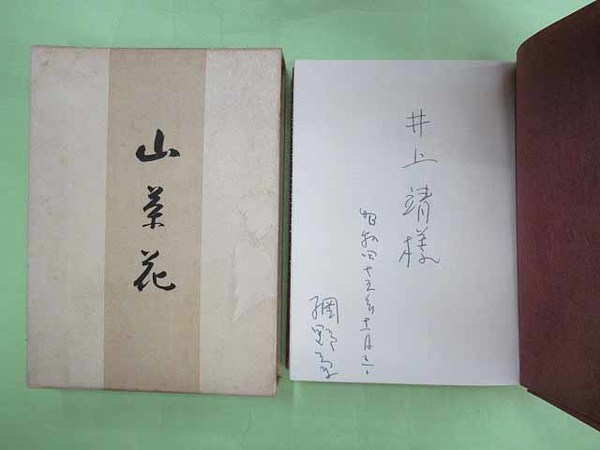 山茶花
井上靖様
昭和四十五年十一月
網野菊